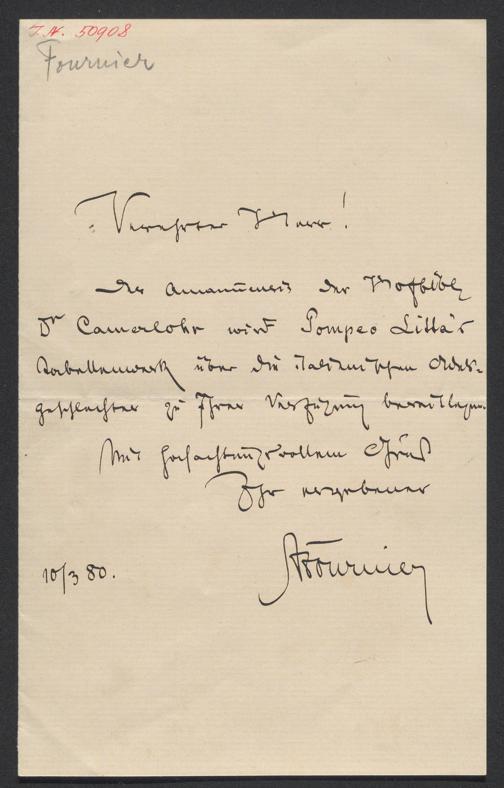 I.N. 50908
Fournier
Verehrter Herr!
Der Amanuensis der Hofbibl
Dr Camerlohr wird Pompeo Littà's
Tabellenwerk über die italienischen Adels-
geschlechter zu Ihrer Verfügung bereitlegen.
Mit hochachtungsvollem Gruß
Ihr ergebener
AFournier
10/3 80.